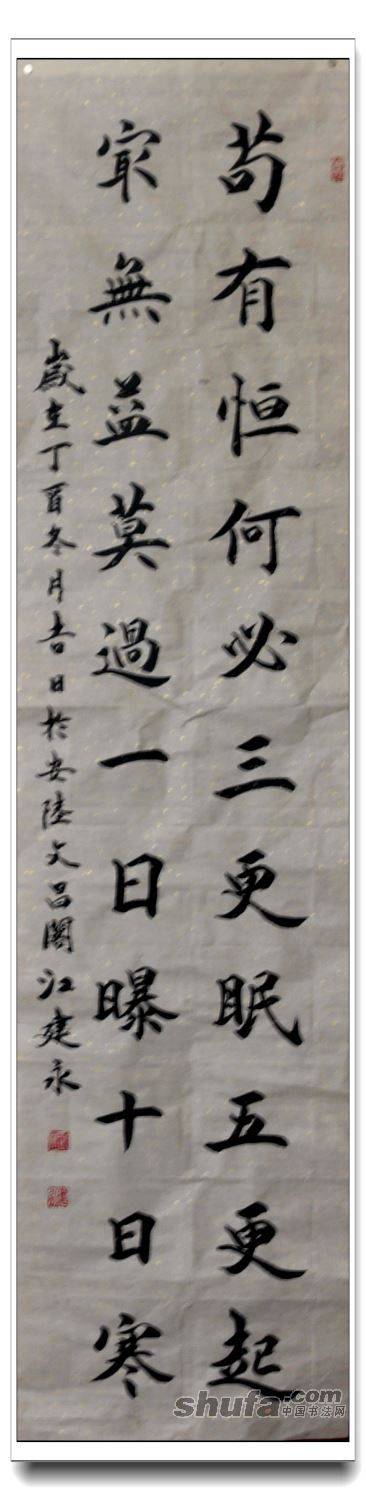 苟有恒何必三更眠五更起
冣無益莫過一日曝十日寒
歲在丁酉冬月吉日於安陸文昌閣江建永
shufa.com
中国书法网